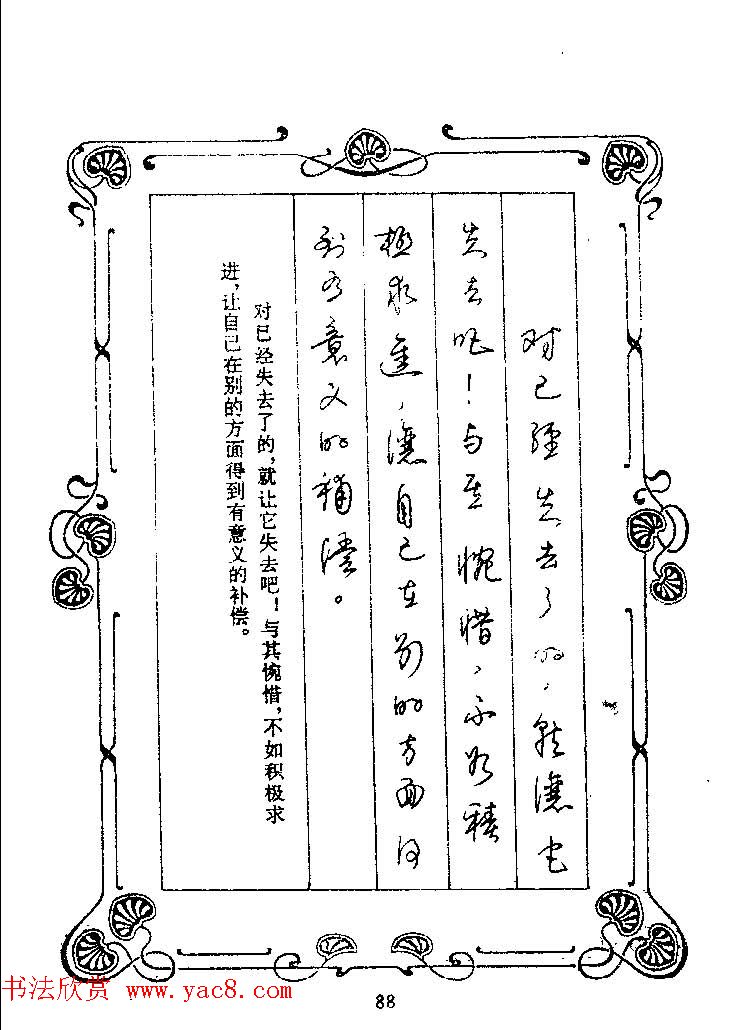 对已經失去了的，就讓它
失去吧！与其惋惜，不如積
極求進，讓自己在别的方面得
到有意义的補償。
对已经失去了的，就让它失去吧！与其惋惜，不如积极求
进，让自己在别的方面得到有意义的补偿。
书法欣赏 www.yac8.com
88